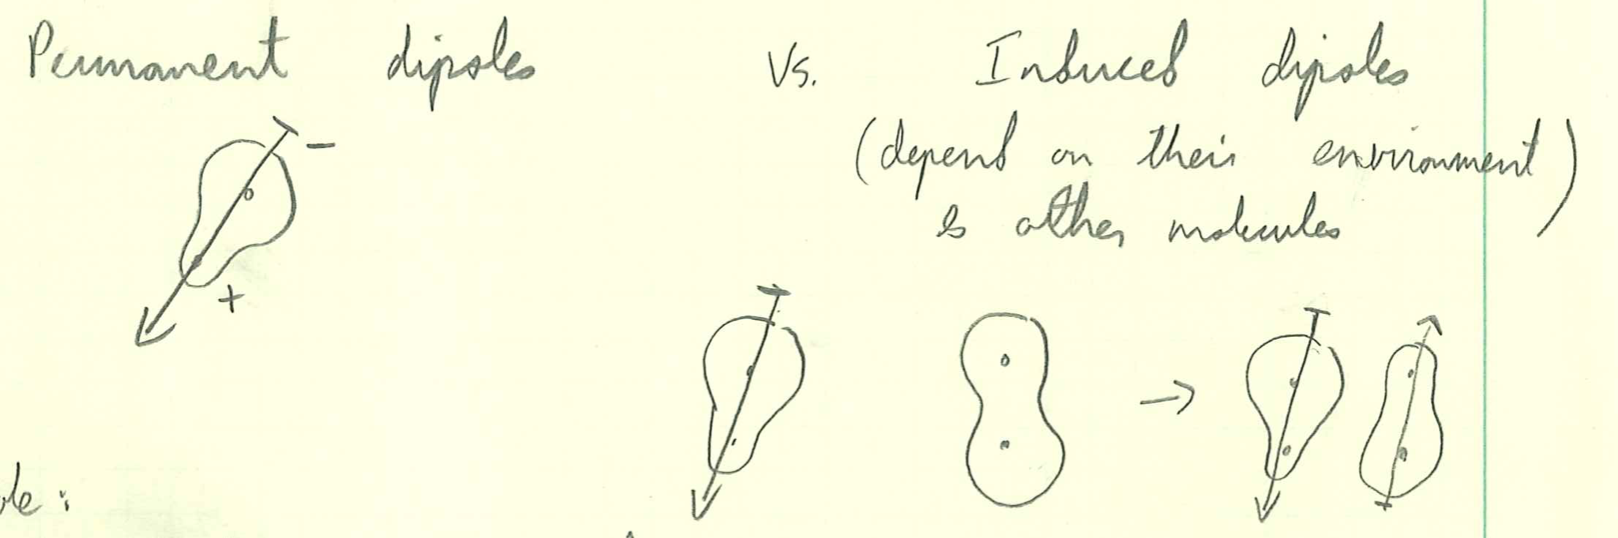 Permanent dipoles vs. Induced dipoles
(depend on their environment)
& other molecules
-
+